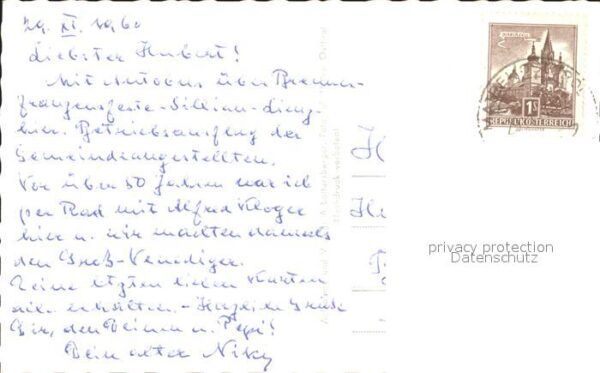 29. XI. 1960
Liebster Hubert!
Mit Autobus über Brenner-
Franzensfeste-Sillian-Lienz-
hier. Betriebsausflug der
Gemeindeangestellten.
Vor über 50 Jahren war ich
per Rad mit Alfred Kloger
hier u. wir machten damals
den Groß-Venediger.
Deine letzten lieben Karten
alle erhalten. - Herzliche Grüße
Dir, den Deinen u. Pepi!
Dein alter Niky
MARIAZELL
1S
REPUBLIK ÖSTERREICH
privacy protection
Datenschutz